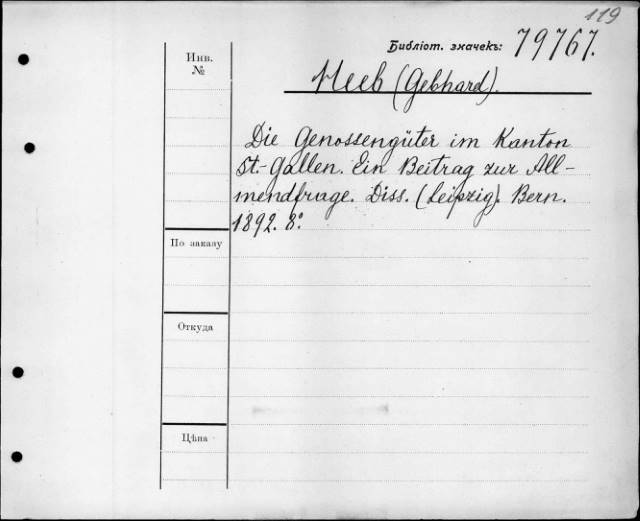 119
Библіот. значекъ: 79767.
Инв. №
Heeb (Gebhard).
Die Genossengüter im Kanton
St.-Gallen. Ein Beitrag zur All-
mendfrage. Diss. (Leipzig). Bern.
1892. 8º.
По заказу
Откуда
Цѣна